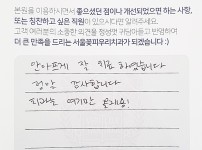 본원을 이용하시면서 좋으셨던 점이나 개선되었으면 하는 사항,
또는 칭찬하고 싶은 직원이 있으시다면 알려주세요.
고객 여러분의 소중한 의견을 정성껏 귀담아듣고 반영하여
더 큰 만족을 드리는 서울꽃피우리치과가 되겠습니다 :)
안아프게 잘 치료 하였습니다
정말 감사합니다
치과는 여기만 올께용!